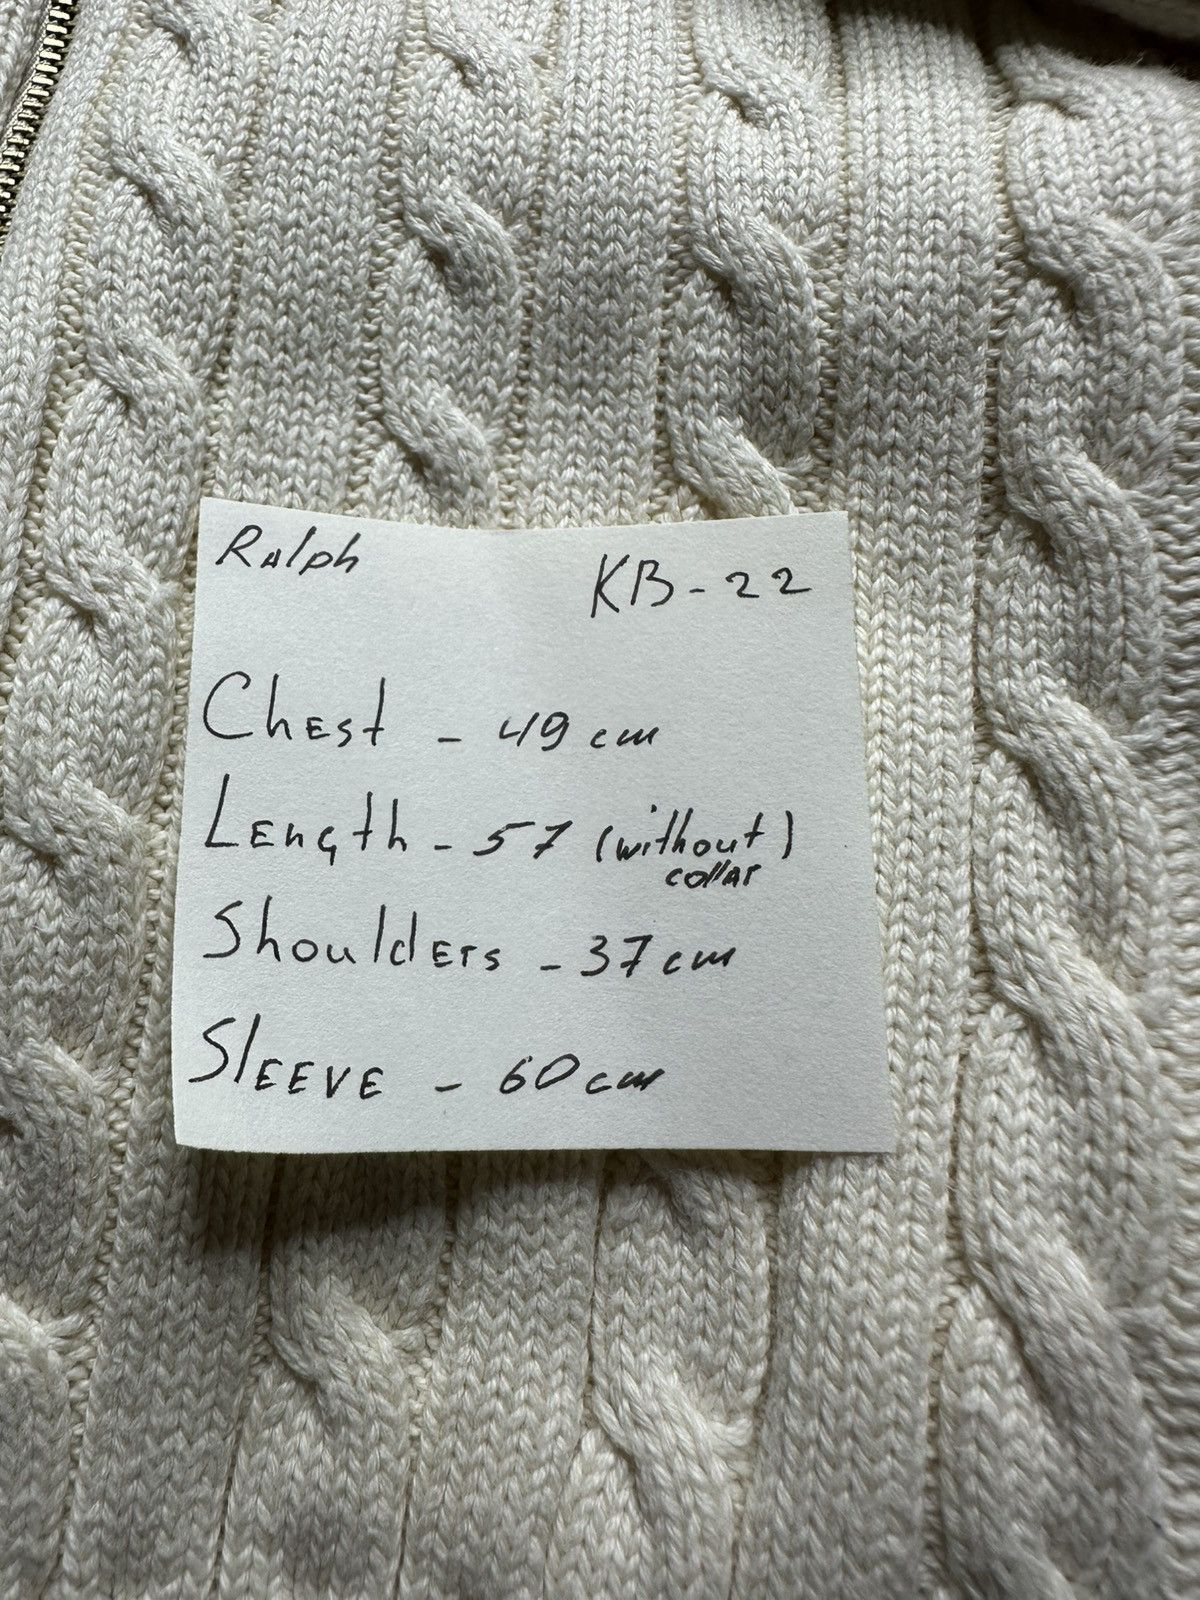 Ralph
KB - 22
Chest - 49 cm
Length - 57 (without)
collar
Shoulders - 37 cm
Sleeve - 60 cm